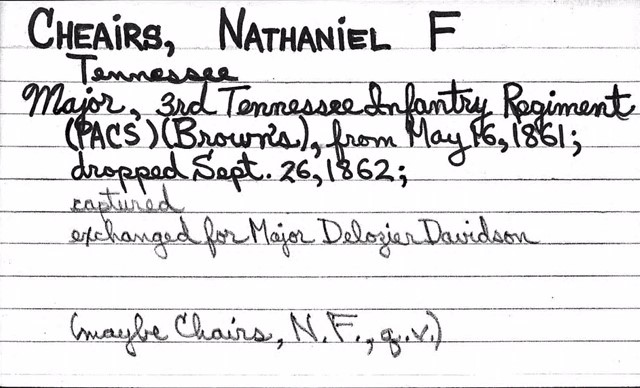 CHEAIRS, NATHANIEL F
Tennessee
Major, 3rd Tennessee Infantry Regiment
(PACS) (Brown's), from May 16, 1861;
dropped Sept. 26, 1862;
captured
exchanged for Major Delozier Davidson
(maybe Chairs, N.F., q.v.)